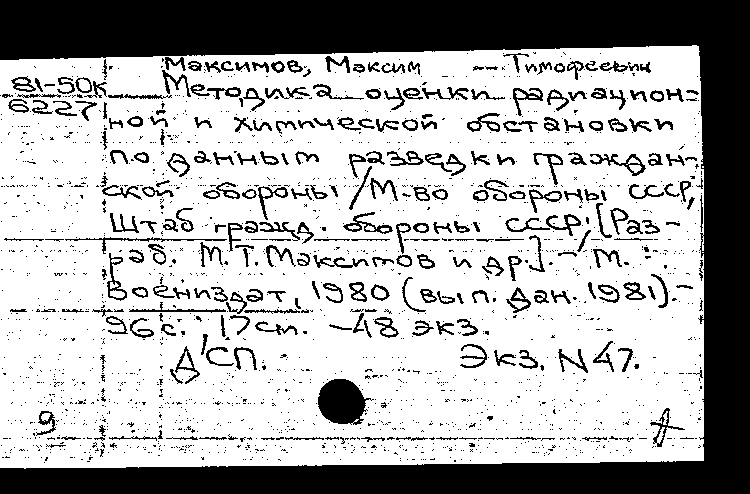 Максимов, Максим — Тимофеевич
81-50к
6227
Методика оценки радиацион-
ной и химической обстановки
по данным разведки граждан-
ской обороны / М-во обороны СССР,
Штаб гражд. обороны СССР; [Раз-
раб. М.Т. Максимов и др.]. - М. :
Воениздат, 1980 (вып. дан. 1981). -
96 с. ; 17 см. - 48 экз.
ДСП. Экз. N 47.
9